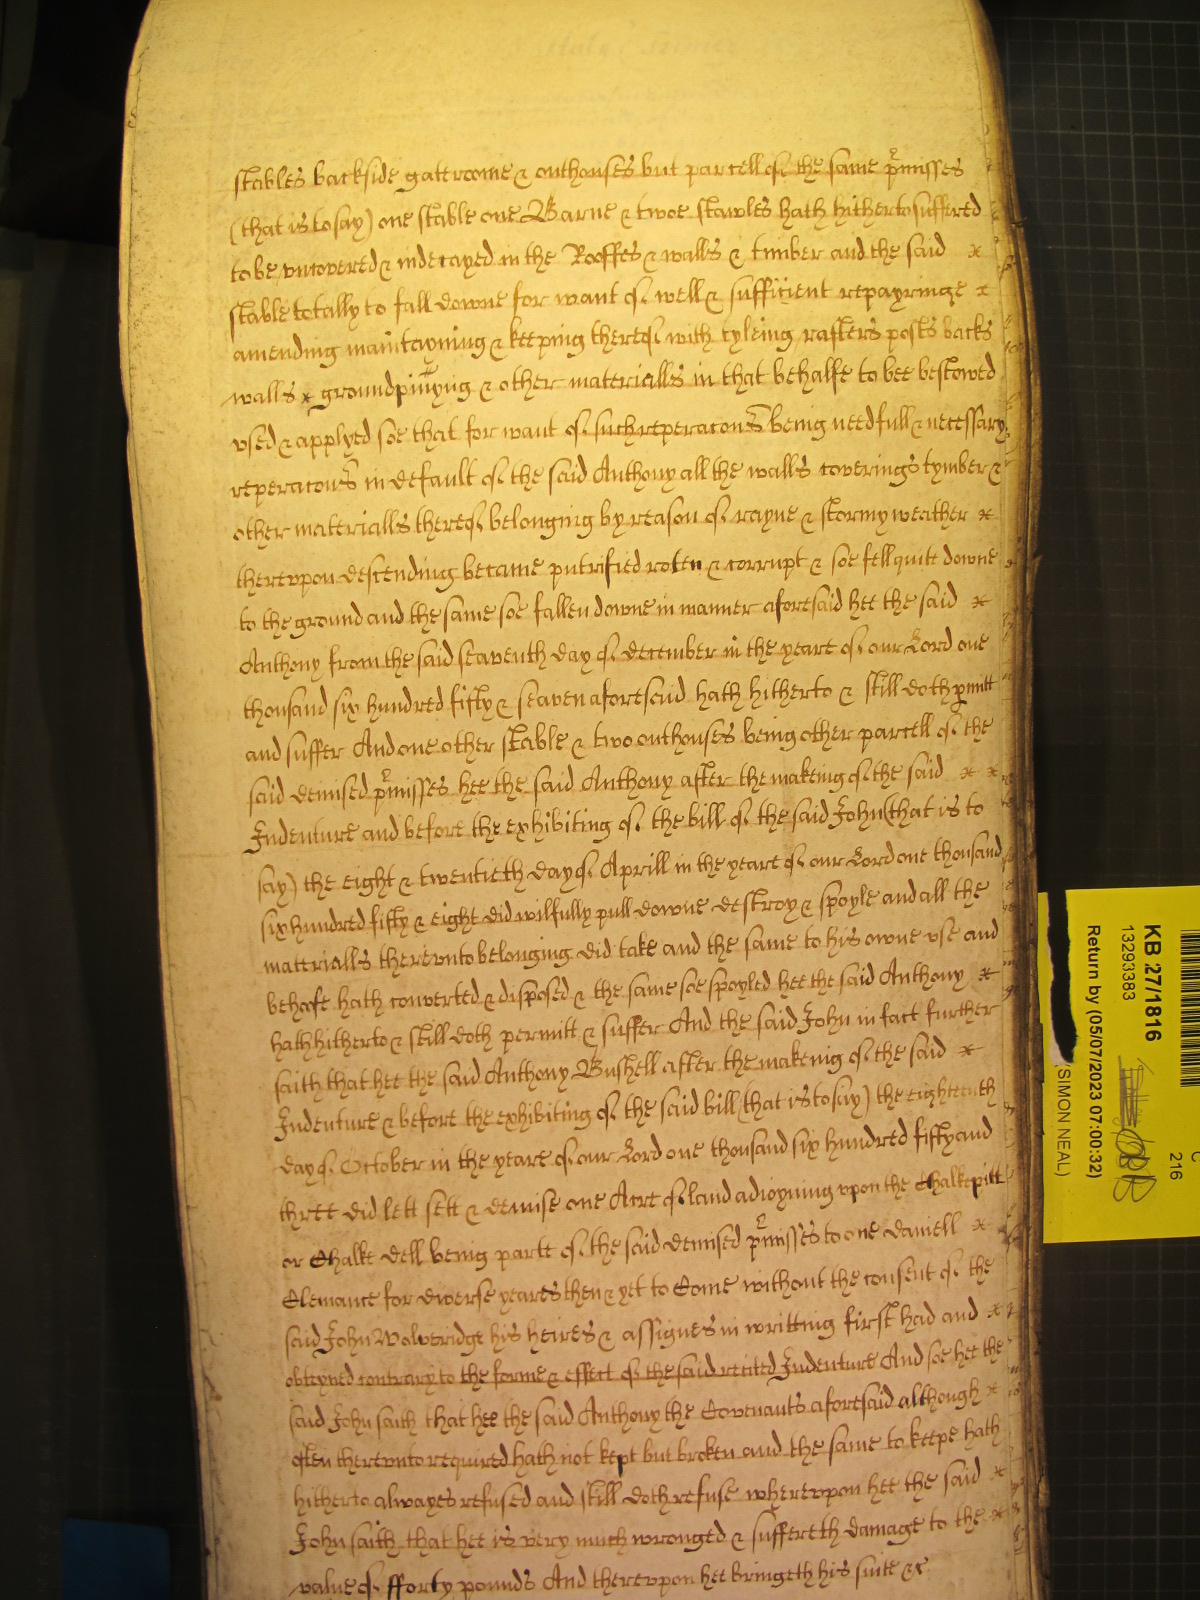 stables backside gateroome & outhouses but parcell of the same pr̃misses
(that is to say) one stable one Barne & twoe stawles hath hitherto suffered
to be uncovered & indecayed in the Rooffes & walls & timber and the said
stable totally to fall downe for want of well & sufficient repayringe
amending maintayning & keeping thereof with tyleing rafters posts backs
walls & groundpinnyng & other materialls in that behalfe to bee bestowed
used & applyed soe that for want of such reperacons being needfull & necessary
reperacons in default of the said Anthony all the walls coverings tymber &
other materialls thereof belonging by reason of rayne & stormy weather
thereupon descending became putrified roten & corrupt & soe fell quite downe
to the ground and the same soe fallen downe in manner aforesaid hee the said
Anthony from the said seaventh day of december in the yeare of our Lord one
thousand six hundred fifty & seaven aforesaid hath hitherto & still doth p̱mitt
and suffer And one other stable & two outhouses being other parcell of the
said demised pr̃misses hee the said Anthony after the makeing of the said
Indenture and before the exhibiting of the bill of the said John (that is to
say) the eight & twentieth day of Aprill in the yeare of our Lord one thousand
six hundred fifty & eight did wilfully pull downe destroy & spoyle and all the
materialls thereunto belonging did take and the same to his owne use and
behofe hath converted & disposed & the same soe spoyled hee the said Anthony
hath hitherto & still doth permitt & suffer And the said John in fact further
saith that hee the said Anthony Bushell after the makeing of the said
Indenture & before the exhibiting of the said bill (that is to say) the eighteenth
day of October in the yeare of our Lord one thousand six hundred fifty and
three did lett sett & demise one Acre of land adioyning upon the Chalkepitt
or Chalke dell being parte of the said demised pr̃misses to one daniell
Clemance for diverse yeares then & yet to Come without the consent of the
said John Wolveridge his heires & assignes in writting first had and
obteyned contrary to the forme & effect of the said recited Indenture And soe hee the
said John saith that hee the said Anthony the Covenants aforesaid although
often thereunto required hath not kept but broken and the same to keepe hath
hitherto alwayes refused and still doth refuse whereupon hee the said
John saith that hee is very much wronged & suffereth damage to the
value of fforty pounds And thereupon hee bringeth his suite &c
KB 27/1816
13293383
Return by (05/07/2023 07:00:32)
(SIMON NEAL)
216